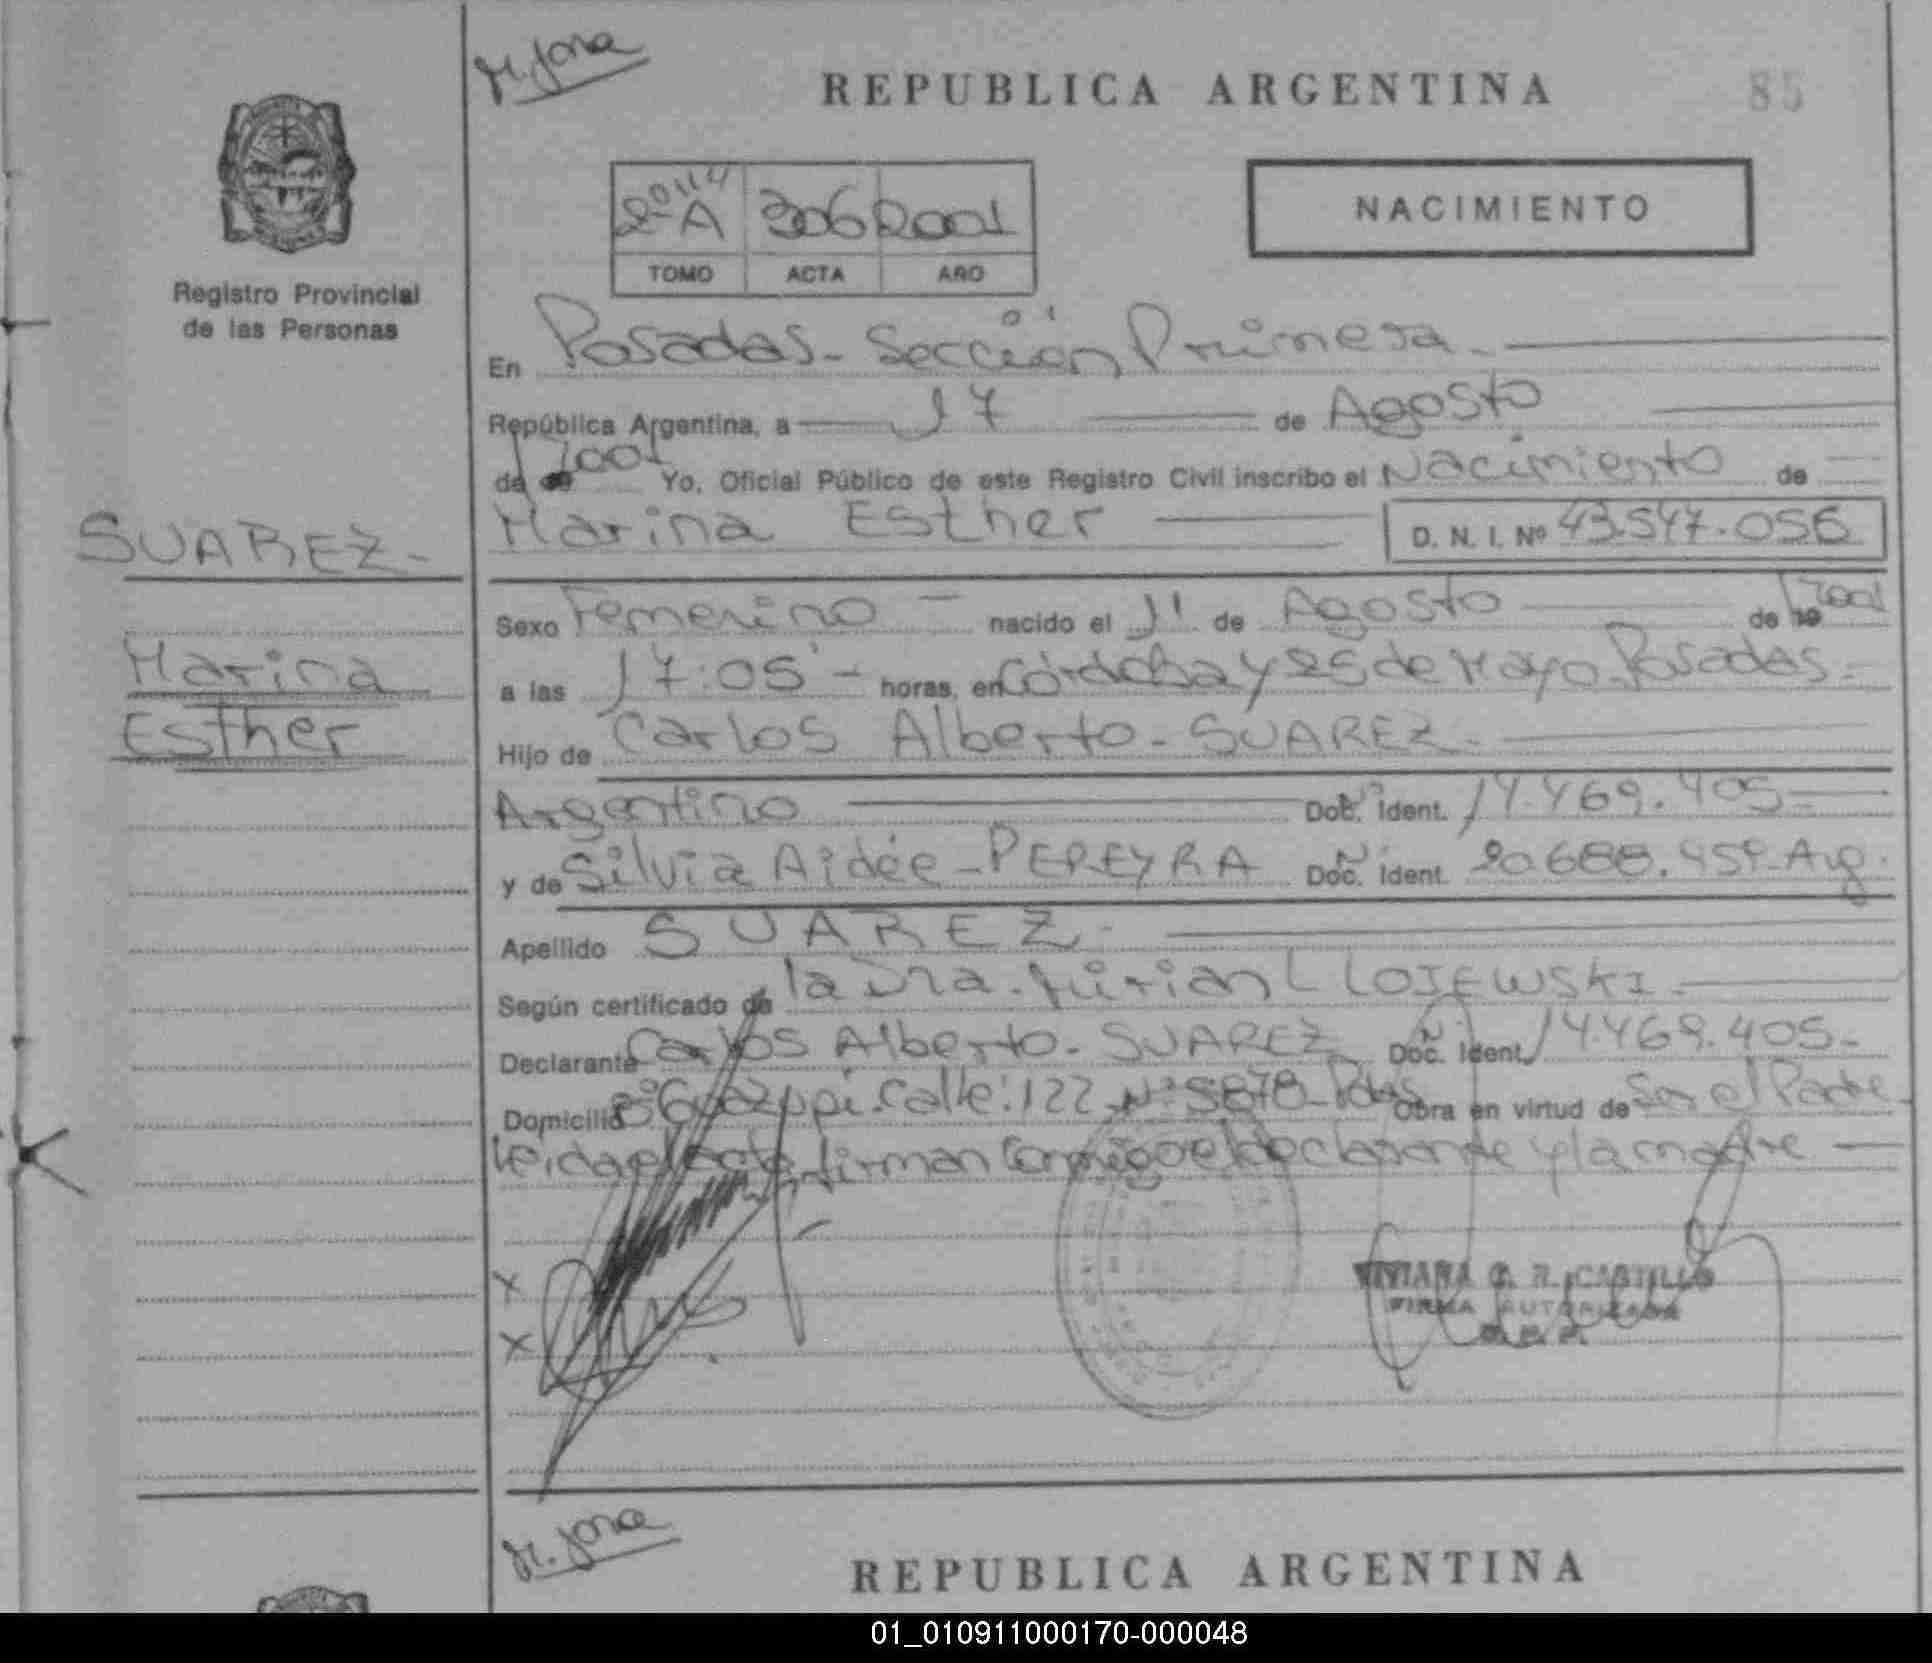 M. Jona
REPUBLICA ARGENTINA
85
2º A 306 2001
TOMO ACTA AÑO
NACIMIENTO
Registro Provincial
de las Personas
En Posadas - Sección Primera -
República Argentina, a 17 de Agosto
de 2001 Yo, Oficial Público de este Registro Civil inscribo el Nacimiento de
SUAREZ -
Marina Esther D. N. I. Nº 43.547.056
Sexo Femenino - nacido el 11 de Agosto de 2001
Marina
a las 17:05 - horas, en Córdoba y 25 de Mayo. Posadas -
Esther
Hijo de Carlos Alberto - SUAREZ -
Argentino Doc. Ident. 14.469.405 -
y de Silvia Aidée - PEREYRA Doc. Ident. 20.688.459 - Arg.
Apellido SUAREZ -
Según certificado de la Dra. Mirian L LOJEWSKI -
Declarante Carlos Alberto - SUAREZ Doc. Ident. 14.469.405 -
Domicilio Bº Guazupi. Calle: 122 Nº 5878 - Pdas Obra en virtud de Ser el Padre -
Leida el acta, firman conmigo el declarante y la madre
X
VIVIANA G. R. CASTILLO
FIRMA AUTORIZADA
X
M. Jona
REPUBLICA ARGENTINA
01_010911000170-000048